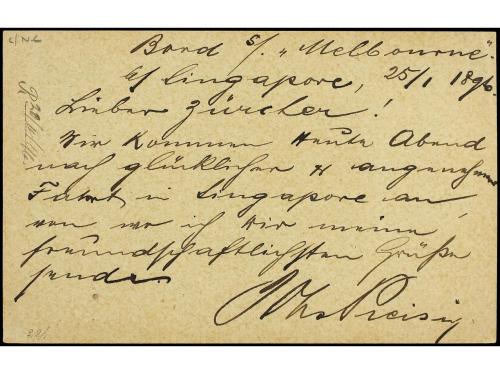 Bord s/. "Melbourne".
Singapore, 25/1 1896.
Lieber Zürcher!
Wir kommen Heute Abend
nach glücklicher & angenehmer
Fahrt in Singapore an,
von wo ich Dir meine
freundschaftlichsten Grüße
sende.